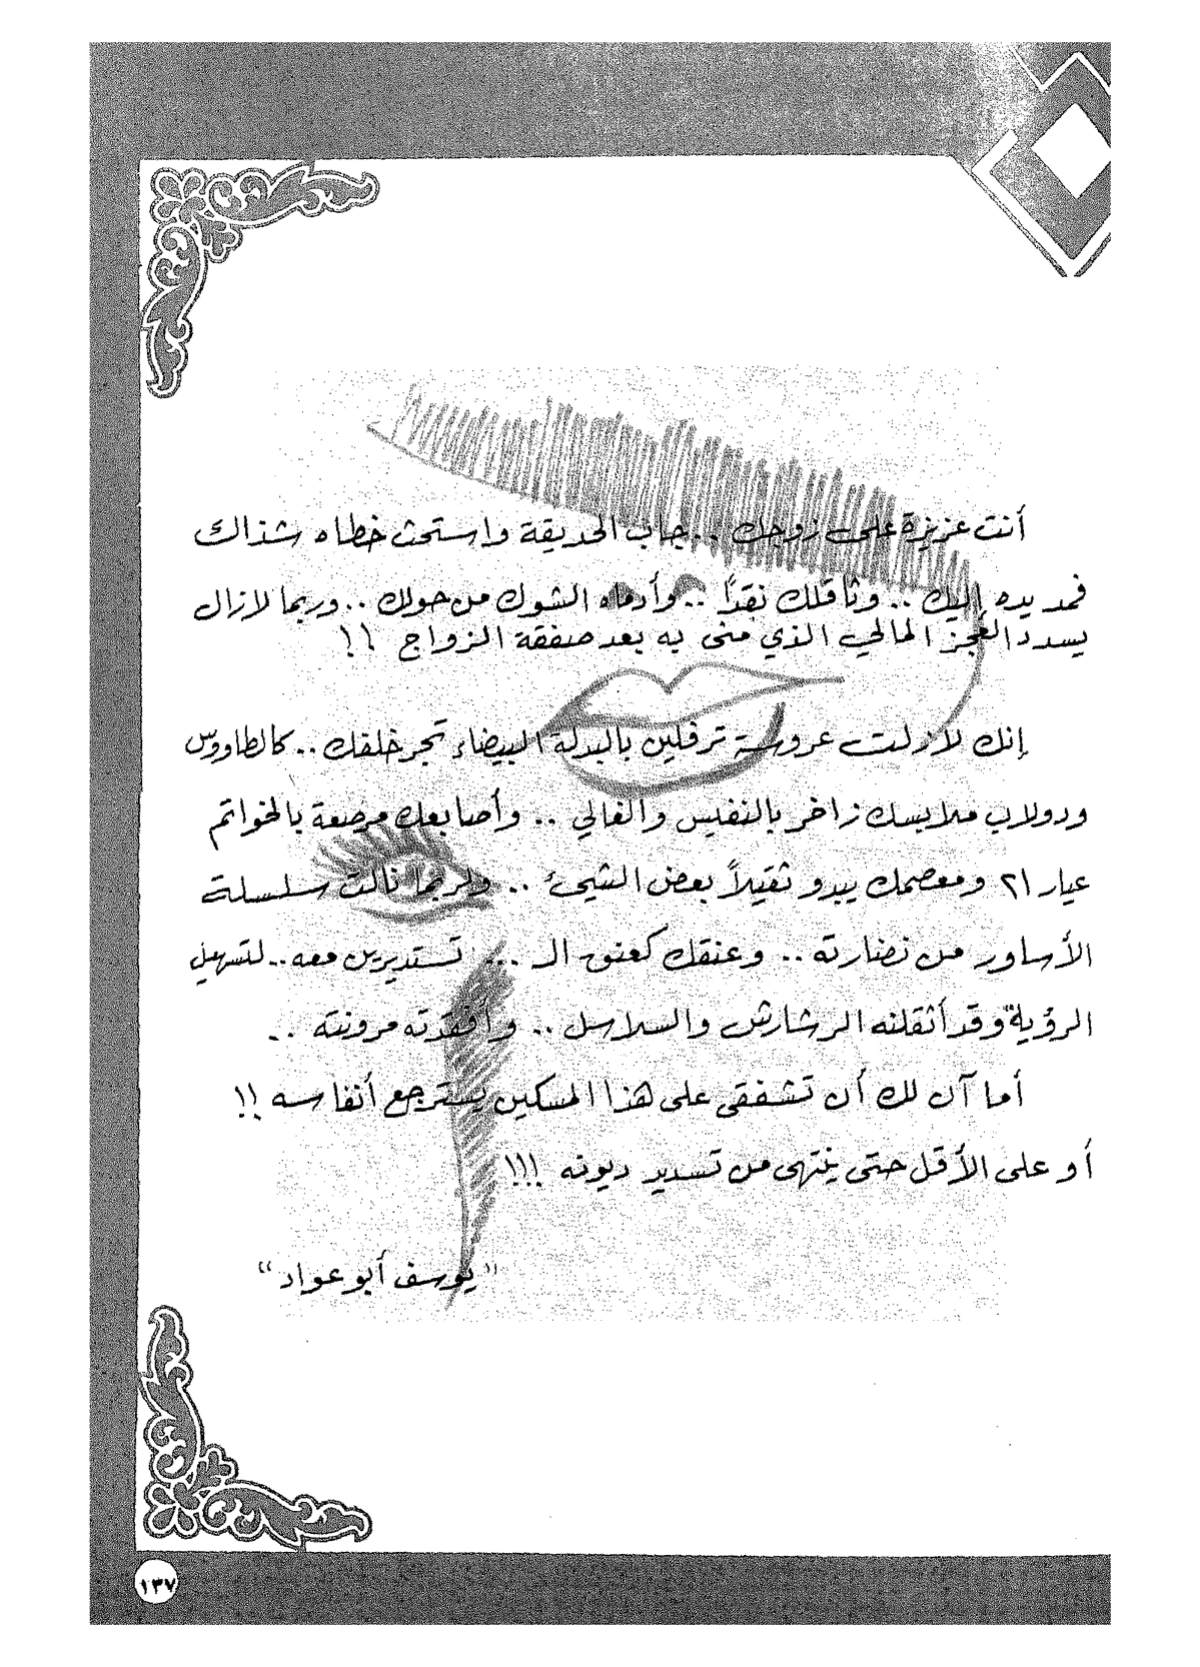 أنت عزيزة على زوجك .. جاب الحديقة واستحث خطاه شذاك
فمد يده إليك .. وثاقلك نقدًا .. وأدماه الشوك من حولك .. وربما لازال
يسدد العجز المالي الذي منى به بعد صفقة الزواج !!
إنك لازلت عروسة ترفلين بالبدلة البيضاء تجر خلفك .. كالطاووس
ودولاب ملابسك زاخر بالنفيس والغالي .. وأصابعك مرصعة بالخواتم
عيار ٢١ ومعصمك يبدو ثقيلاً بعض الشيء .. ولربما نالت سلسلة
الأساور من نضارته .. وعنقك كعنق الـ ... تستديرين معه .. لتسهيل
الرؤية وقد أثقلته الرشارش والسلاسل .. وأفقدته مرونته ..
أما آن لك أن تشفقى على هذا المسكين يسترجع أنفاسه !!
أو على الأقل حتى ينتهى من تسديد ديونه !!!
"يوسف أبو عواد"
١٣٧